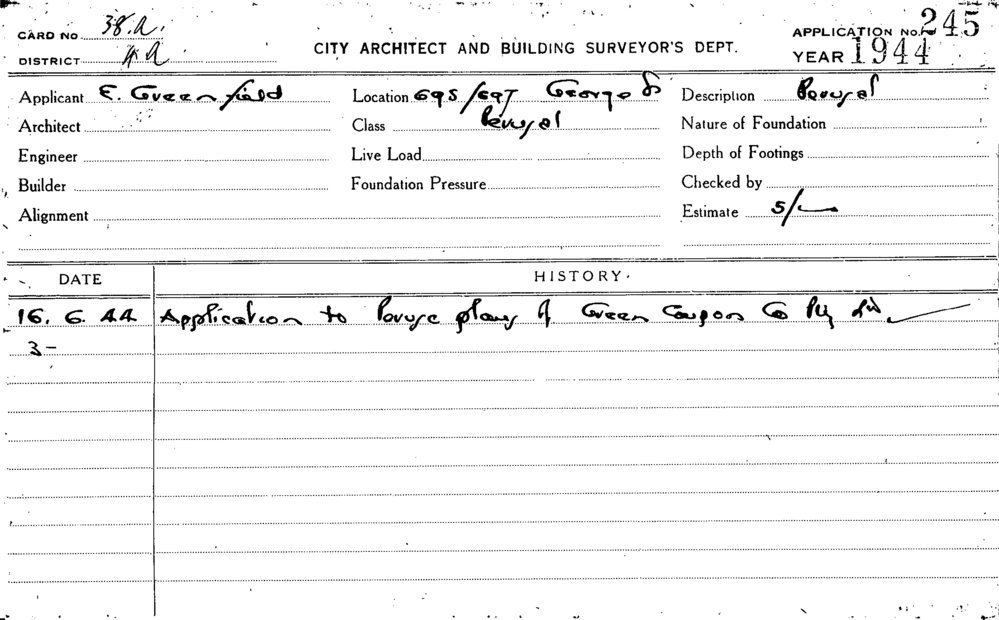 CARD NO. 38.A. APPLICATION NO. 245
DISTRICT CITY ARCHITECT AND BUILDING SURVEYOR'S DEPT. YEAR 1944
Applicant E. Greenfield Location 695/697 George St Description Perusal
Architect Class Perusal Nature of Foundation
Engineer Live Load Depth of Footings
Builder Foundation Pressure Checked by
Alignment Estimate 5/-
DATE HISTORY.
16. 6. 44 Application to peruse plans of Green Coupon Co Pty Ltd.
3-